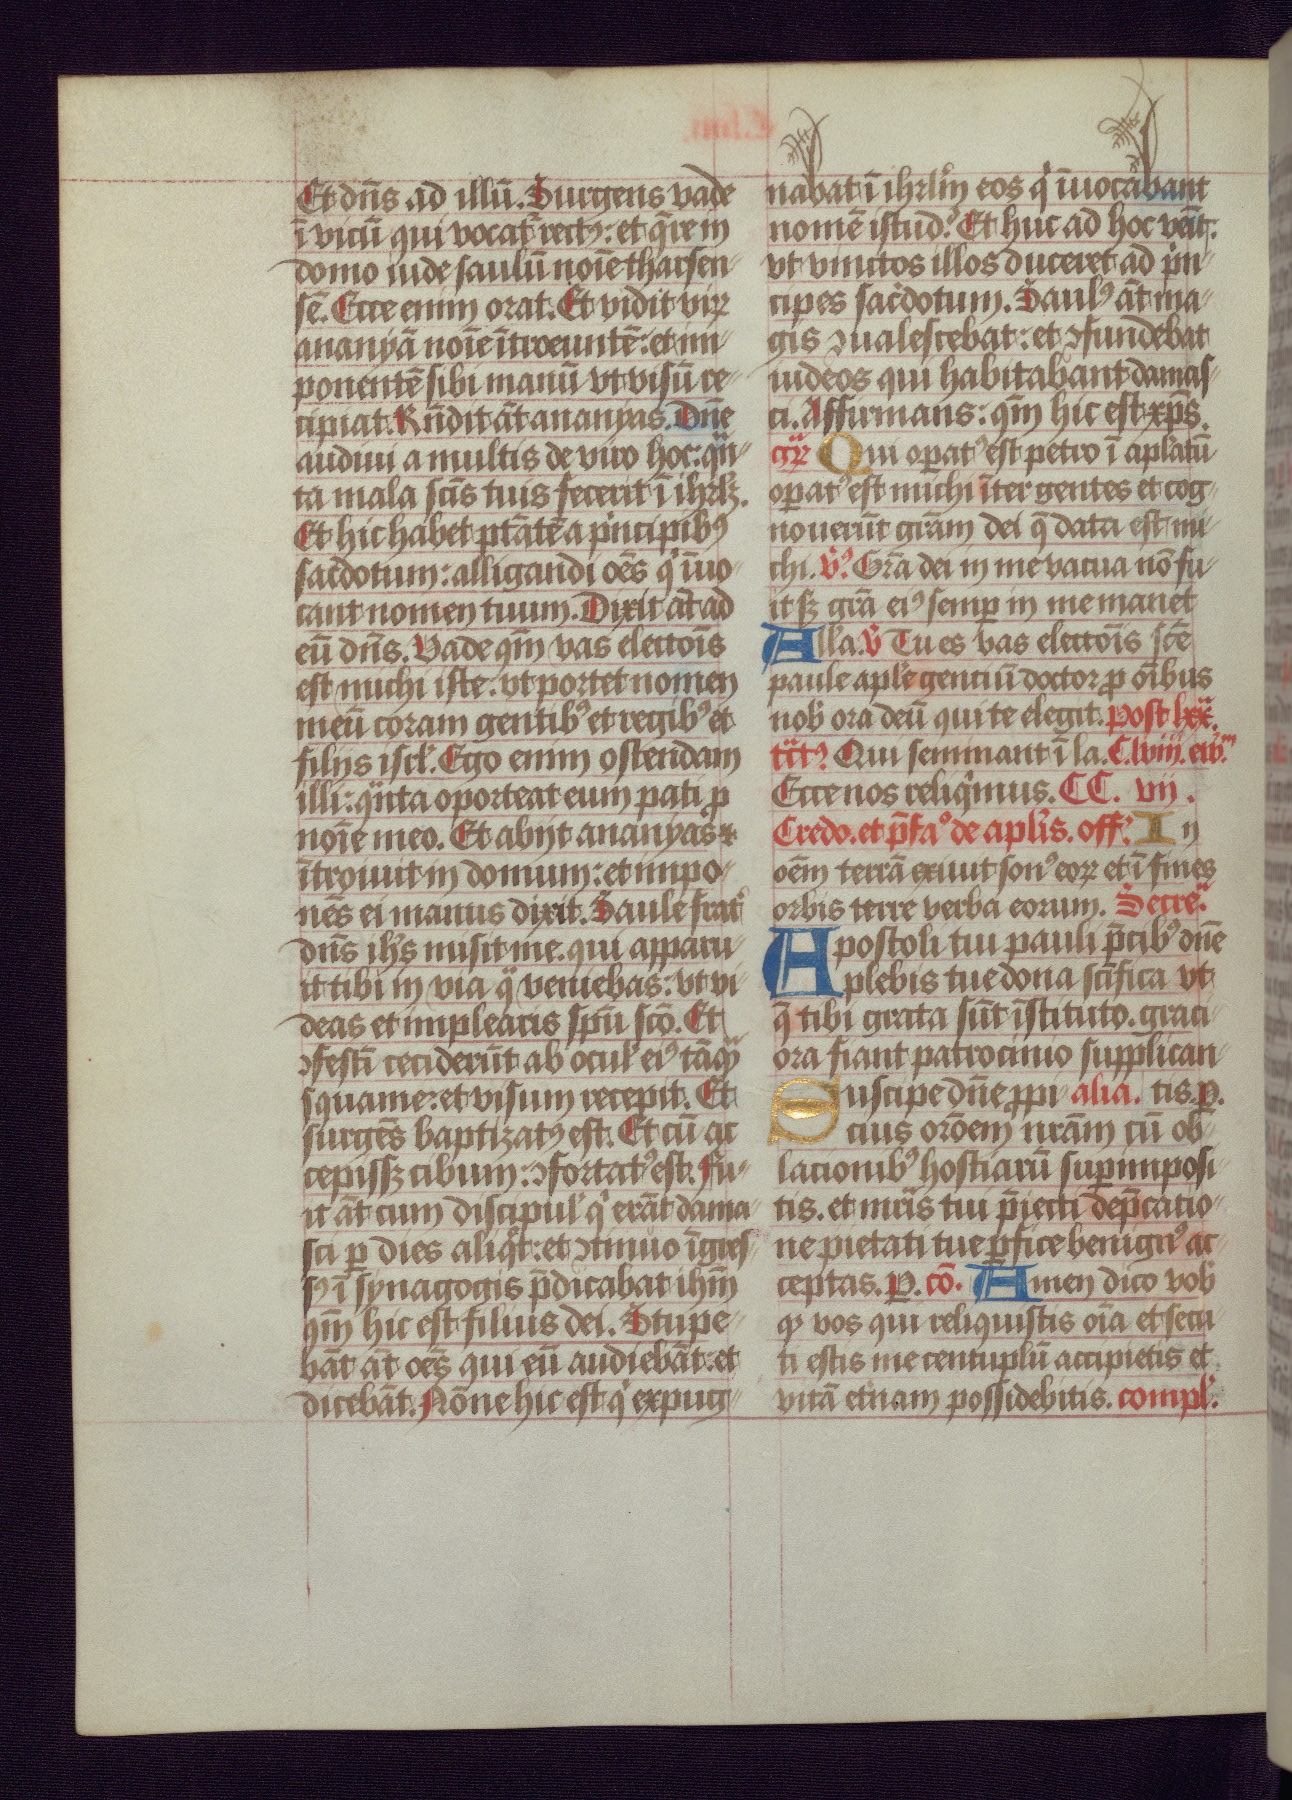 Et dn̄s ad illū. Surgens vade
ī vicū qui vocat᷑ rectꝰ: et q̄re in
domo iude saulū noīe tharsen-
sē. Ecce enim orat. Et vidit virꝝ
ananyā noīe ītroeuntē: et im-
ponentē sibi manū vt visū re-
cipiat. Rn̄dit āt ananyas. Dn̄e
audiui a multis de viro hoc: qn̄-
ta mala scīs tuis fecerit ī ihrlꝫ.
Et hic habet ptātē a pͥncipibꝰ
sacᷓdotum: alligandi oēs qͥ īuo-
cant nomen tuum. Dixit āt ad
eū dn̄s. Vade qm̄ vas electoīs
est michi iste: vt portet nomen
meū coram gentibꝰ et regibꝰ et
filijs isrl᷑. Ego enim ostendam
illi: qn̄ta oporteat eum pati ꝓ
noīe meo. Et abijt ananyas ⁊
ītroiuit in domum: et impo-
nēs ei manus dixit. Saule frat᷑
dn̄s ihs̄ misit me. qui apparu-
it tibi in via qͣ veniebas: vt vi-
deas et implearis spū scō. Et
ꝯfestī ceciderūt ab ocul᷑ eiꝰ tāqͣꝫ
squame: et visum recepit. Et
surgēs baptizatꝰ est. Et cū ac
cepissꝫ cibum: ꝯfortatꝰ est. Fu-
it āt cum discipul᷑ qͥ erāt dama-
sci ꝑ dies aliqͦt: et ꝯtinuo īgres-
sꝰ ī synagogis p̄dicabat ihm̄
qm̄ hic est filius dei. Stupe-
bāt āt oēs qui eū audiebāt: et
dicebāt. Nōne hic est qͥ expug-
nabat ī ihrlm̄ eos qͥ īuocabant
nomē istud? Et huc ad hoc vēit:
vt vinctos illos duceret ad pͥn-
cipes sacᷓdotum. Saulꝰ āt ma-
gis ꝯualescebat: et ꝯfundebat
iudeos qui habitabant damas-
ci. Affirmans: qm̄ hic est xp̄s.
gͣꝝ Qui opatꝰ est petro ī aplatū
opatꝰ est michi īter gentes et cog-
nouerūt grām dei q̄ data est mi-
chi. V̊. Grā dei in me vacua nō fu-
it sꝫ grā eiꝰ semꝑ in me manet
All᷑a. V̊ Tu es vas electoīs scē
paule aplē gentiū doctor ꝓ oībus
nob᷑ ora deū qui te elegit. post lxx.
tct᷑. Qui seminant ī la. C. lviij. eūm.
Ecce nos reliqͥmus. CC. vij.
Credo. et p̄faꝰ de aplīs. off. In
oēm terrā exiuit sonꝰ eoꝝ et ī fines
orbis terre verba eorum. Secreͣ.
Apostoli tui pauli p̄cibꝰ dn̄e
plebis tue dona scīfica vt
q̄ tibi grata sūt īstituto. graci-
ora fiant patrocinio supplican-
Suscipe dn̄e ꝓpi- alia. tis. P.
cius orōem nrām cū ob-
lacionibꝰ hostiarū suꝑimposi-
tis. et mrīs tui p̄iecti dep̄catio-
ne pietati tue ꝑfice benignꝰ ac-
ceptas. P. cō. Amen dico vob᷑
qͥ vos qui reliquistis oīa et secu-
ti estis me centuplū accipietis et
vitā et᷑nam possidebitis. compl᷑.